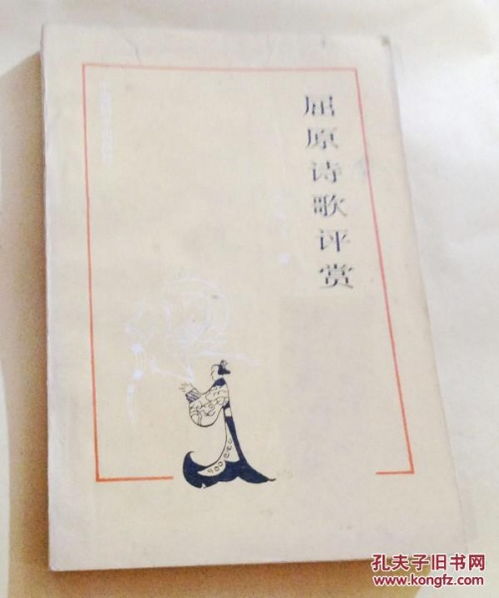 屈原诗歌评赏
孔夫子旧书网
www.kongfz.com